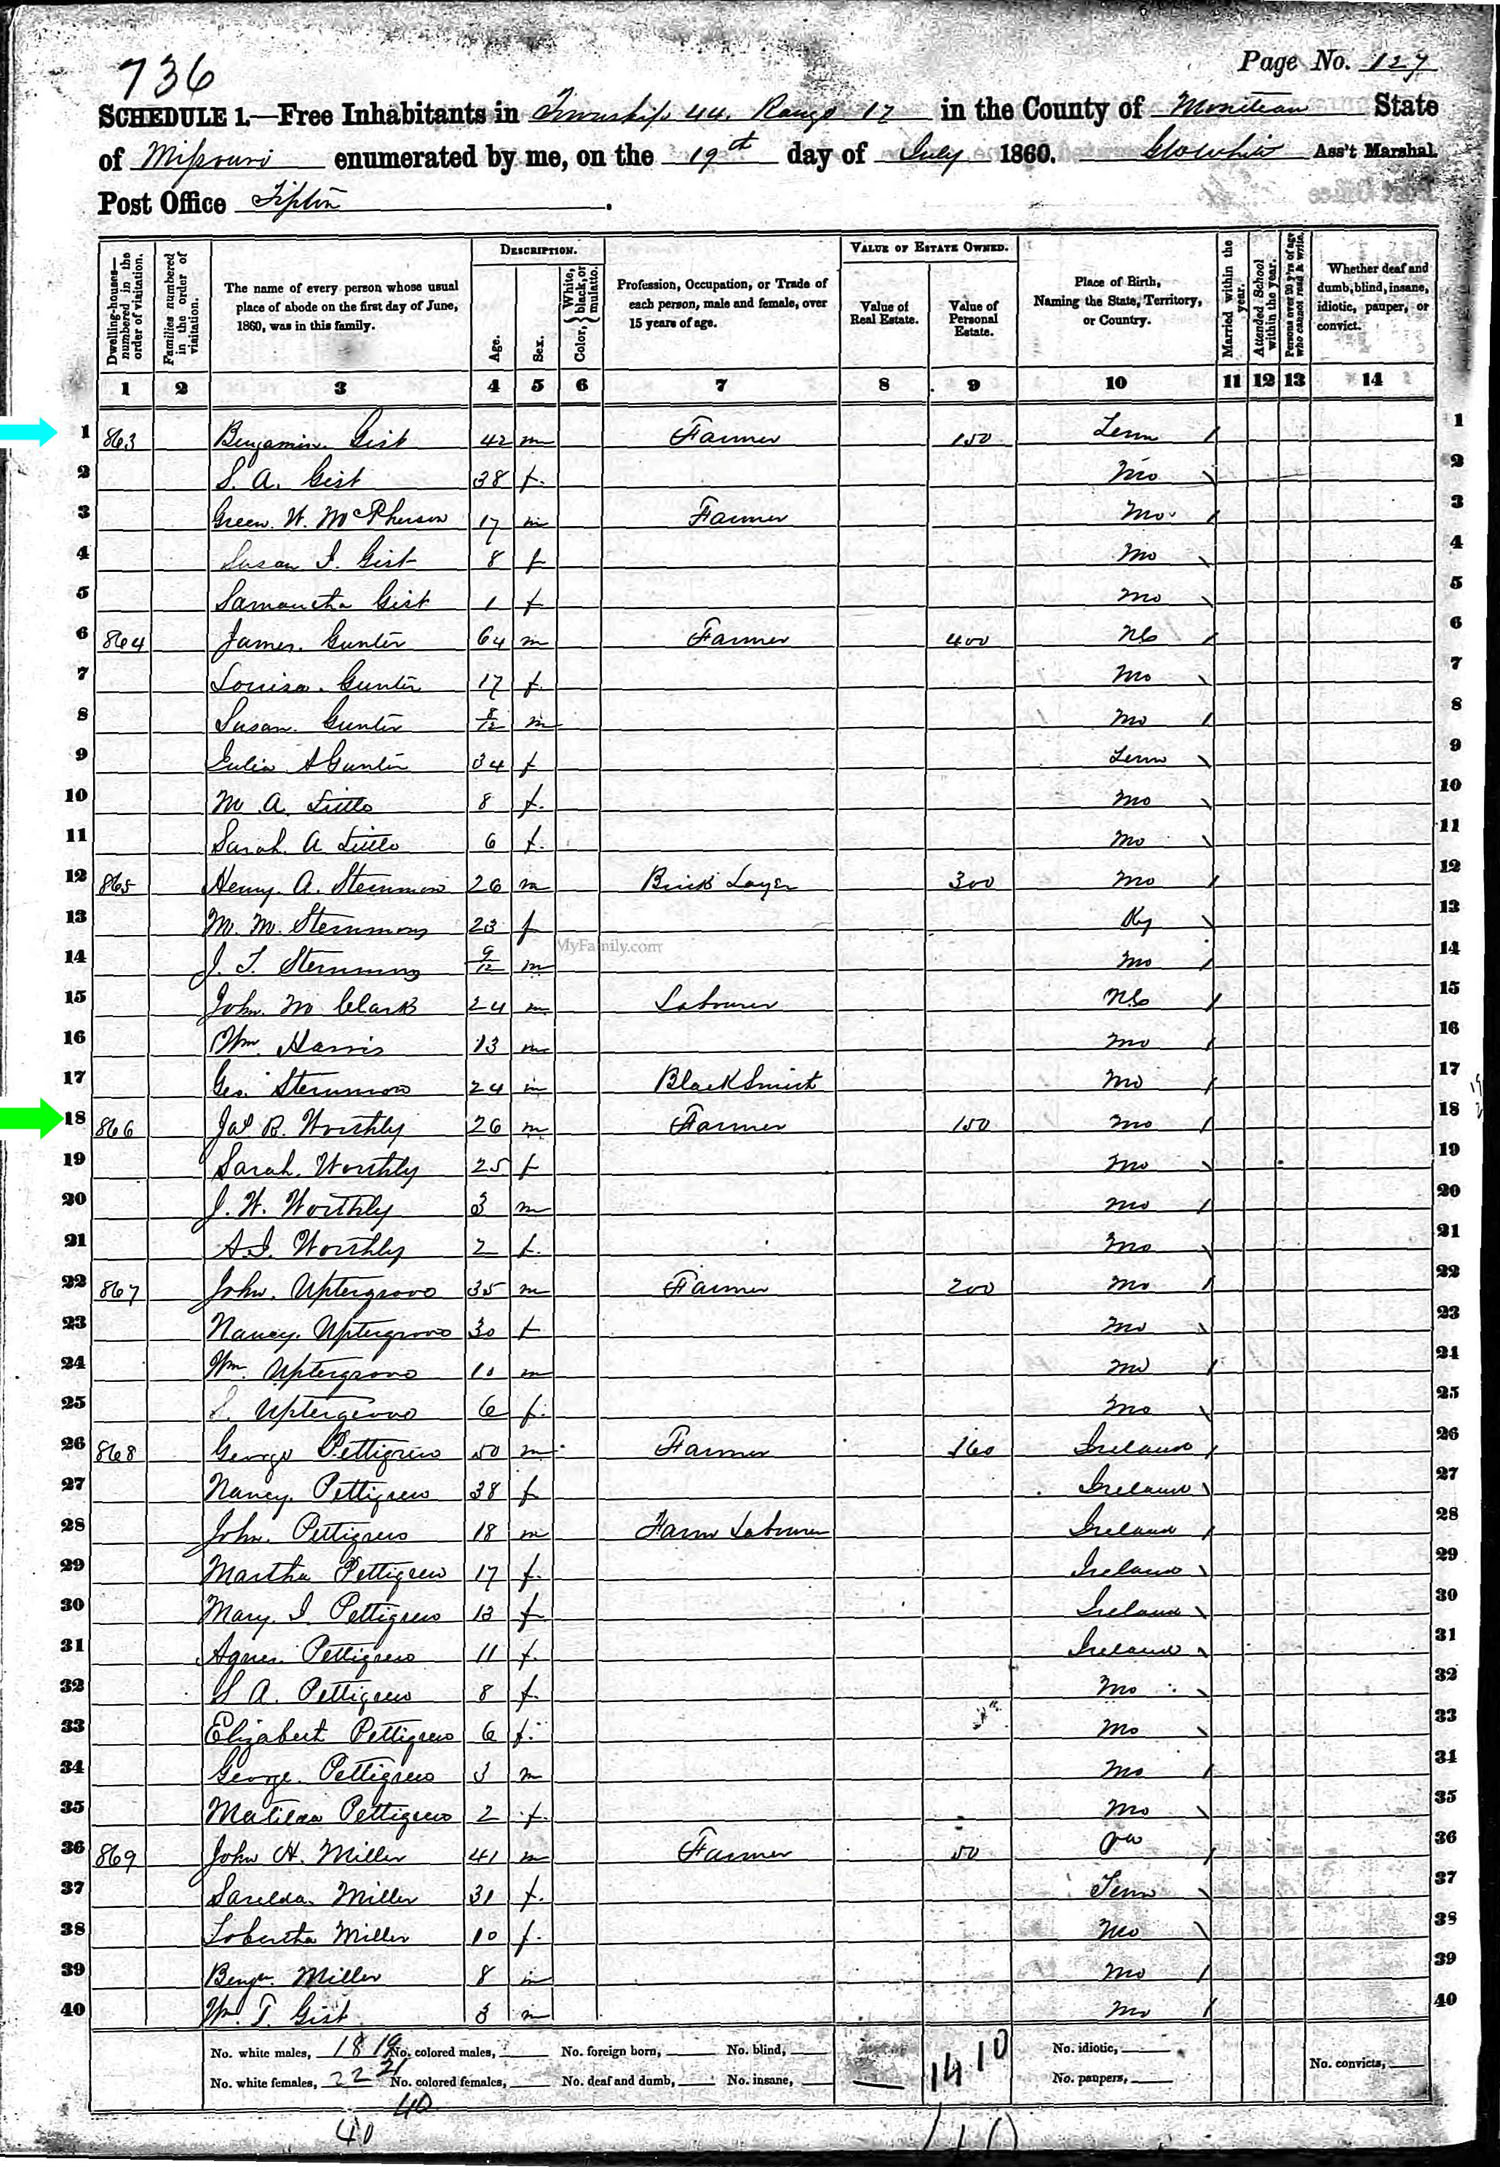 736
Page No. 127
SCHEDULE 1.—Free Inhabitants in Township 44. Range 17 in the County of Moniteau State
of Missouri enumerated by me, on the 19th day of July 1860. Ass't Marshal.
Post Office Tipton.
Dwelling-houses—numbered in the order of visitation.
Families numbered in the order of visitation.
The name of every person whose usual place of abode on the first day of June, 1860, was in this family.
DESCRIPTION.
Age.
Sex.
Color, { White, black, or mulatto.
Profession, Occupation, or Trade of each person, male and female, over 15 years of age.
VALUE OF ESTATE OWNED.
Value of Real Estate.
Value of Personal Estate.
Place of Birth, Naming the State, Territory, or Country.
Married within the year.
Attended School within the year.
Persons over 20 y'rs of age who cannot read & write.
Whether deaf and dumb, blind, insane, idiotic, pauper, or convict.
1 2 3 4 5 6 7 8 9 10 11 12 13 14
1 863 Benjamin Gist 42 m Farmer 150 Tenn / 1
2 S. A. Gist 38 f. Mo \ 2
3 Green W. McPherson 17 m Farmer Mo. / 3
4 Susan J. Gist 8 f Mo \ 4
5 Samantha Gist 1 f Mo \ 5
6 864 James Gunter 64 m Farmer 400 NC / 6
7 Louisa Gunter 17 f. Mo \ 7
8 Susan Gunter 8/12 m Mo / 8
9 Julia A Gunter 34 f Tenn \ 9
10 M A. 8 f. Mo \ 10
11 Sarah A 6 f. Mo \ 11
12 865 Henry A. Stemmons 26 m Brick Layer 300 Mo / 12
13 M. M. Stemmons 23 f Ky \ 13
14 J. T. Stemmons 9/12 m Mo / 14
15 John M Clark 24 m Labourer NC / 15
16 Wm. Harris 13 m Mo / 16
17 Geo. Stemmons 24 m BlackSmith Mo / 17
18 866 Jas B. Worthly 26 m Farmer 150 Mo / 18
19 Sarah Worthly 25 f Mo \ 19
20 J. W. Worthly 3 m Mo / 20
21 A. J. Worthly 2 f. Mo \ 21
22 867 John Uptergrove 35 m Farmer 200 Mo / 22
23 Nancy Uptergrove 30 f Mo \ 23
24 Wm. Uptergrove 10 m Mo / 24
25 S. Uptergrove 6 f. Mo \ 25
26 868 George Pettigrew 50 m Farmer 160 Ireland / 26
27 Nancy Pettigrew 38 f Ireland \ 27
28 John Pettigrew 18 m Farm Labourer Ireland / 28
29 Martha Pettigrew 17 f. Ireland \ 29
30 Mary J. Pettigrew 13 f Ireland \ 30
31 Agnes Pettigrew 11 f. Ireland \ 31
32 S A. Pettigrew 8 f. Mo \ 32
33 Elizabeth Pettigrew 6 f. Mo \ 33
34 George Pettigrew 3 m Mo / 34
35 Matilda Pettigrew 2 f. Mo \ 35
36 869 John H. Miller 41 m Farmer 50 / 36
37 Sarelda Miller 31 f. Tenn \ 37
38 Miller 10 f. Mo \ 38
39 Benj. Miller 8 m Mo / 39
40 Wm. T. Gist 3 m Mo / 40
MyFamily.com
No. white males, 18 19 No. colored males, No. foreign born, No. blind, 1410 No. idiotic, No. convicts,
No. white females, 22 21 No. colored females, No. deaf and dumb, No. insane, No. paupers,
40
40